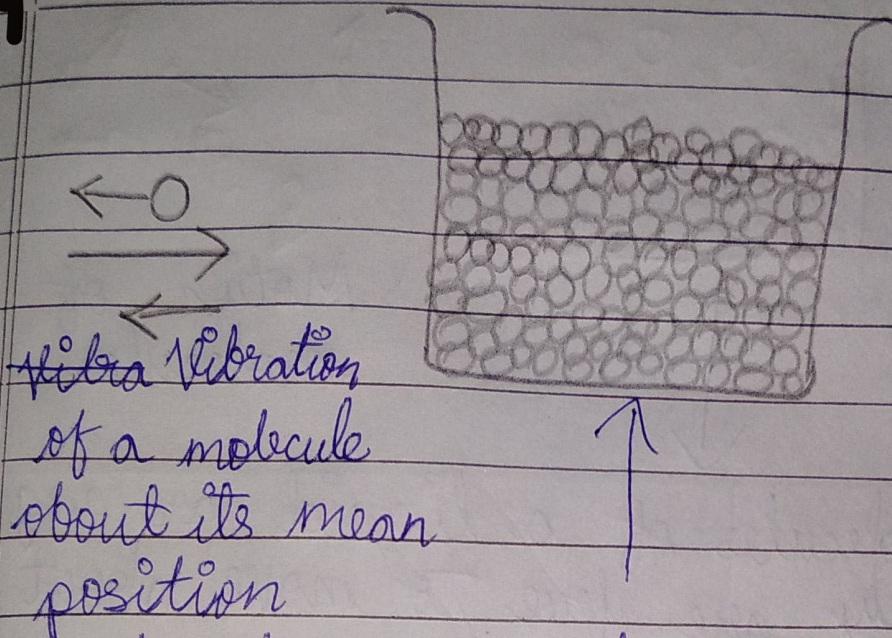 Vibration
of a molecule
about its mean
position